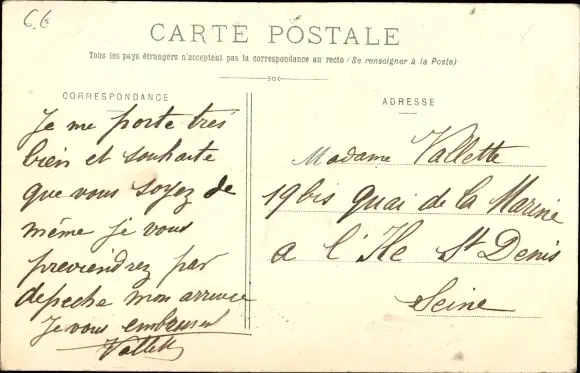 6.6
CARTE POSTALE
Tous les pays étrangers n'acceptent pas la correspondance au recto (Se renseigner à la Poste)
CORRESPONDANCE
Je me porte très
bien et souhaite
que vous soyez de
même je vous
previendrez par
depeche mon arrivee
Je vous embrassent
Vallette
ADRESSE
Madame Vallette
19 bis quai de la Marine
a l'Ile St Denis
Seine